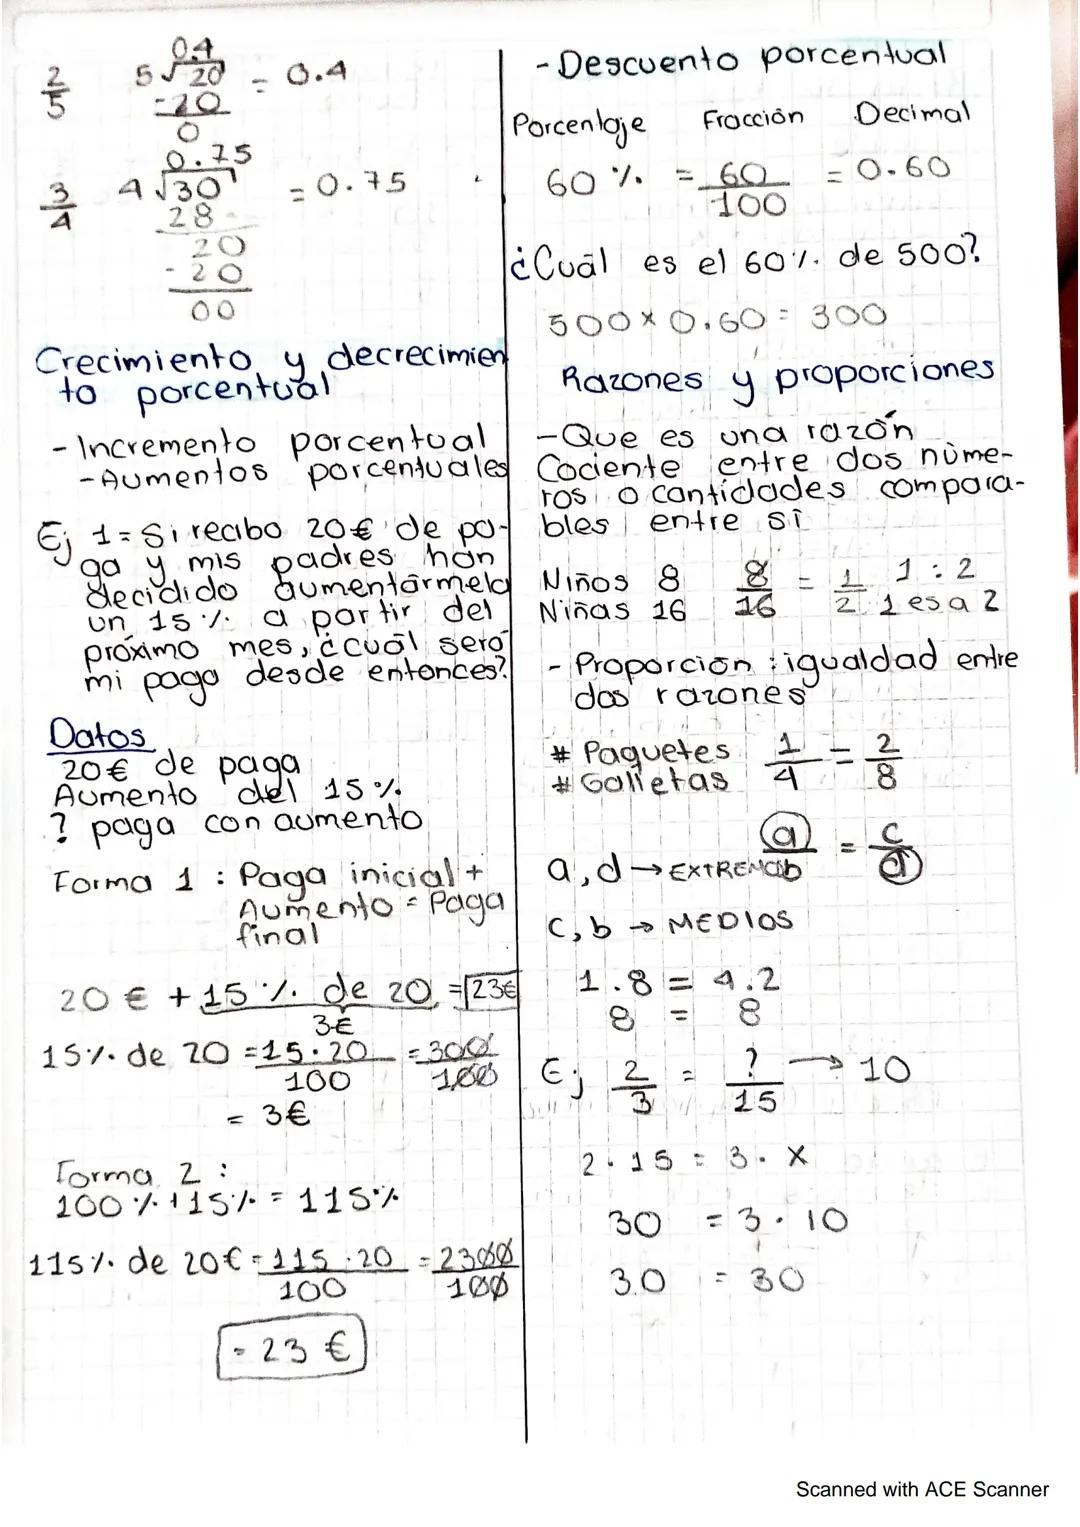 2/5 5√20 0.4 = 0.4
-20
0
3/4 4√30 0.75 = 0.75
28
20
-20
00
Crecimiento y decrecimien
to porcentual
- Incremento porcentual
- Aumentos porcentuales
Ej 1= Si recibo 20€ de pa-
ga y mis padres han
decidido aumentármela
un 15% a partir del
próximo mes, ¿cuál será
mi paga desde entonces?
Datos
20€ de paga
Aumento del 15%
? paga con aumento
Forma 1 : Paga inicial +
Aumento = Paga
final
20 € + 15 % de 20 = 23€
3€
15% de 20 = 15·20/100 = 300/100
= 3€
Forma 2 :
100 % + 15% = 115%
115% de 20€ = 115·20/100 = 2300/100
= 23 €
- Descuento porcentual
Porcentaje Fracción Decimal
60 % = 60/100 = 0.60
¿Cuál es el 60% de 500?
500 x 0.60 = 300
Razones y proporciones
- Que es una razón
Cociente entre dos núme-
ros o cantidades compara-
bles entre sí
Niños 8 8/16 = 1/2 1 : 2
Niñas 16 1 es a 2
- Proporción : igualdad entre
dos razones
# Paquetes 1/4 = 2/8
# Galletas
a/b = c/d
a, d → EXTREMOS
c, b → MEDIOS
1.8 = 4.2
8 = 8
Ej 2/3 = ?/15 → 10
2·15 = 3·x
30 = 3·10
30 = 30
Scanned with ACE Scanner